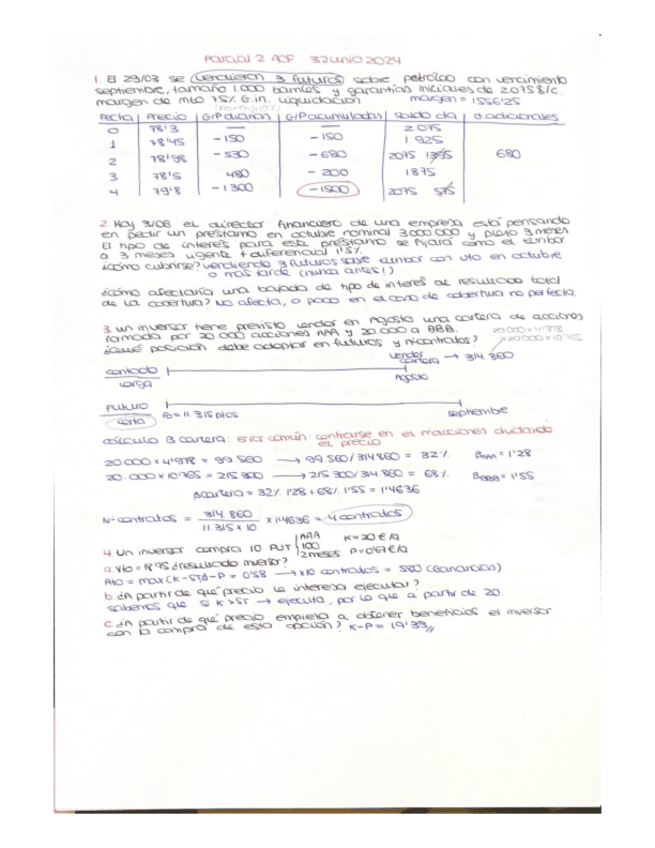 Parcial 2 ACF 3 Junio 2024
1. El 29/03 se vendieron 3 futuros sobre petróleo con vencimiento
septiembre, tamaño 1.000 barriles y garantías iniciales de 2.075$/c.
margen de mto 75% G.in. Liquidación margen = 1556'25
Fecha Precio G/P diarias G/P acumuladas Saldo cta adicionales
0 78'3 — — 2.075
1 78'45 -150 -150 1.925
2 78'98 -530 -680 2075 1395 680
3 78'5 480 -200 1875
4 79'8 -1300 -1500 2075 575
2. Hoy 3/06 el director financiero de una empresa está pensando
en pedir un préstamo en octubre nominal 3.000.000 y plazo 3 meses
El tipo de interés para este préstamo se fijará como el euribor
a 3 meses vigente + diferencial 1'5%
¿cómo cubrirse? vendiendo 3 futuros sobre euribor con vto en octubre
o más tarde (nunca antes!)
¿cómo afectaría una bajada de tipo de interés al resultado total
de la cobertura? No afecta, o poco en el caso de cobertura no perfecta.
3. un inversor tiene previsto vender en Agosto una cartera de acciones
formada por 20.000 acciones AAA y 20.000 a BBB.
¿Qué posición debe adoptar en futuros y nºcontratos?
20.000 x 4'978
+ 20.000 x 10'765
vender cartera → 314.860
contado
larga
Agosto
Futuro
corta
Fo = 11.315 ptos
septiembre
cálculo β cartera: Error común: centrarse en el nºacciones olvidando
el precio
20.000 x 4'978 = 99.560 → 99.560/314.860 = 32% βAAA = 1'28
20.000 x 10'765 = 215.300 → 215.300/314.860 = 68% βBBB = 1'55
βcartera = 32% 1'28 + 68% 1'55 = 1'4636
Nº contratos = 314.860 / 11.315 x 10 x 1'4636 = 4 contratos
4. Un inversor compra 10 PUT
AAA K = 20 €/a
100
2 meses P = 0'67 €/a
a. Vto = 18'75 ¿resultado inversor?
Rto = max(K-ST,0)-P = 0'58 → x10 contratos = 580 (Ganancias)
b. ¿A partir de qué precio le interesa ejecutar?
sabemos que si K > ST → ejecuta, por lo que a partir de 20.
c. ¿A partir de qué precio empieza a obtener beneficios el inversor
con la compra de esta opción? K-P = 19'33